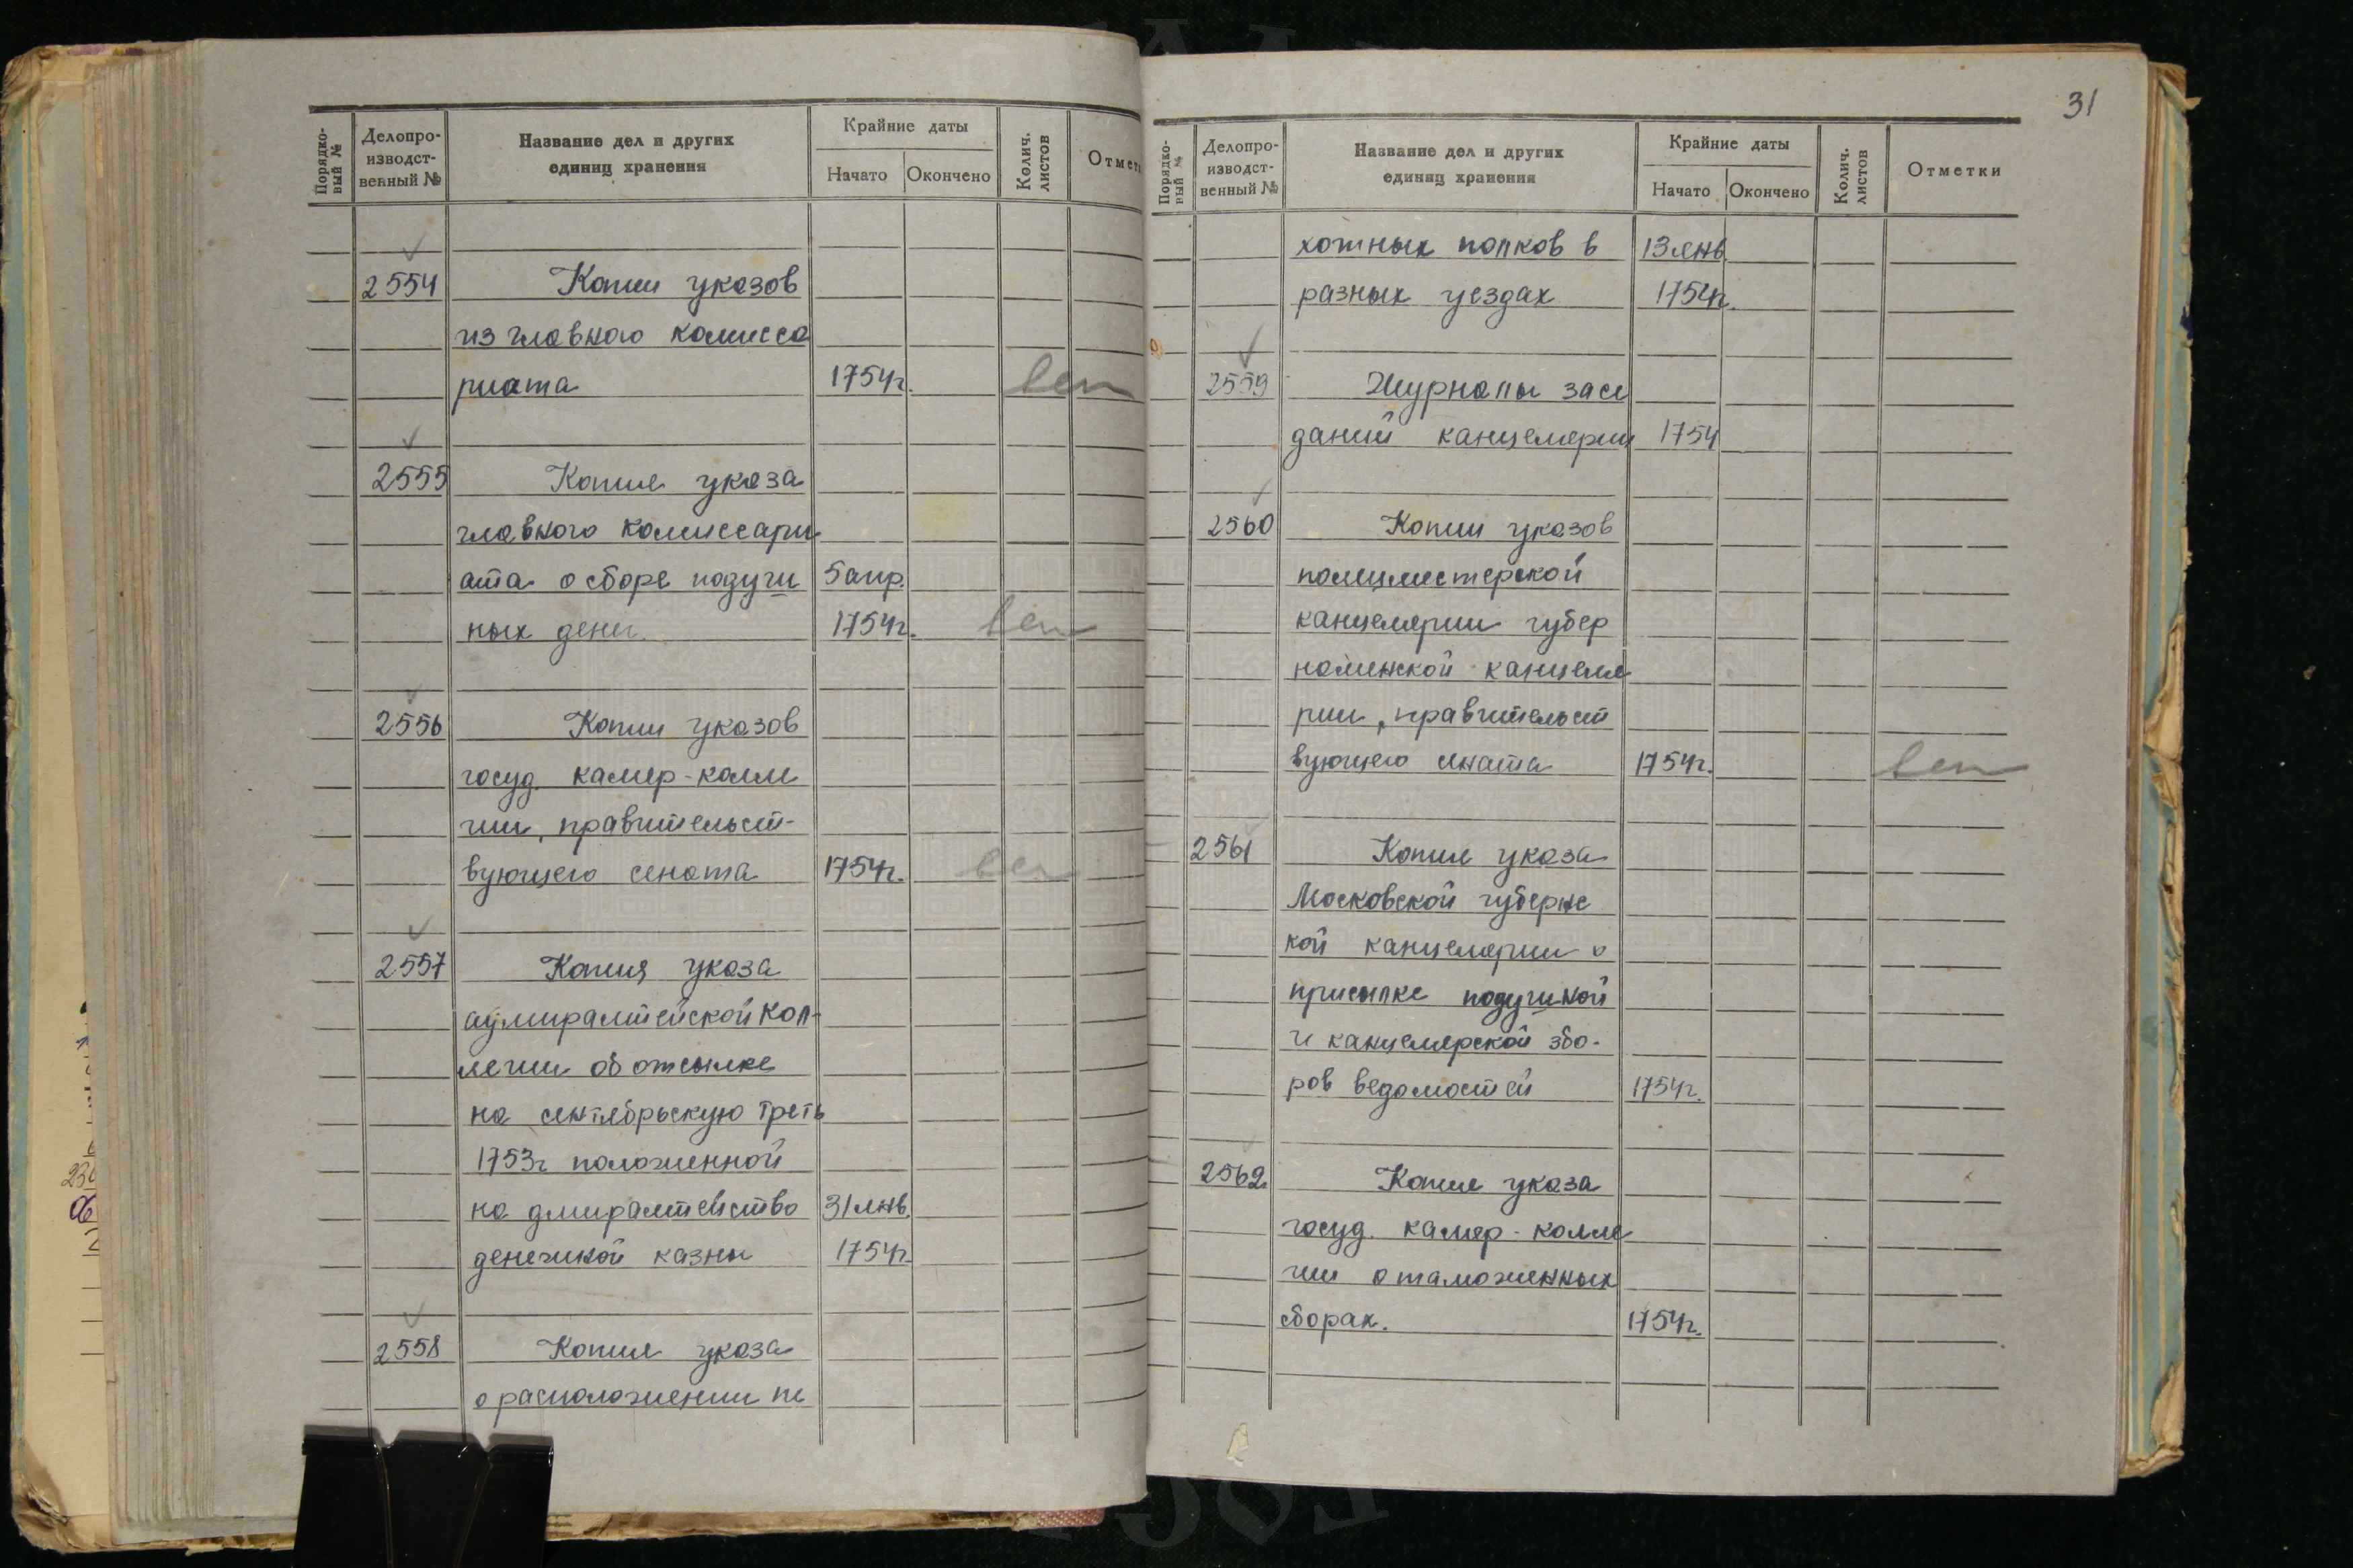 Порядко-
вый №
Делопро-
изводст-
венный №
Название дел и других
единиц хранения
Крайние даты
Начато
Окончено
Колич.
листов
Отметк
2554 Копии указов
из главного комисса
риата 1754г.
2555 Копия указа
главного комиссари
ата о сборе подуш 5 апр.
ных денег 1754г.
2556 Копии указов
госуд. камер-колле
гии, правительст-
вующего сената 1754г.
2557 Копия указа
адмиралтейской кол-
легии об отсылке
на сентябрьскую треть
1753г положенной
на дмиралтейство 31 янв.
денежной казны 1754г.
2558 Копия указа
о расположении пе
31
Порядко-
вый №
Делопро-
изводст-
венный №
Название дел и других
единиц хранения
Крайние даты
Начато
Окончено
Колич.
листов
Отметки
хотных полков в 13 янв
разных уездах 1754г.
2559 Журналы засе
даний канцелярии 1754
2560 Копии указов
полицмейстерской
канцелярии губер
канцеля
рии, правительст
вующего сената 1754г.
2561 Копия указа
Московской губернс
кой канцелярии о
присылке подушной
и канцелярской збо-
ров ведомостей 1754г.
2562 Копия указа
госуд. камер-колле
гии о таможенных
сборах. 1754г.